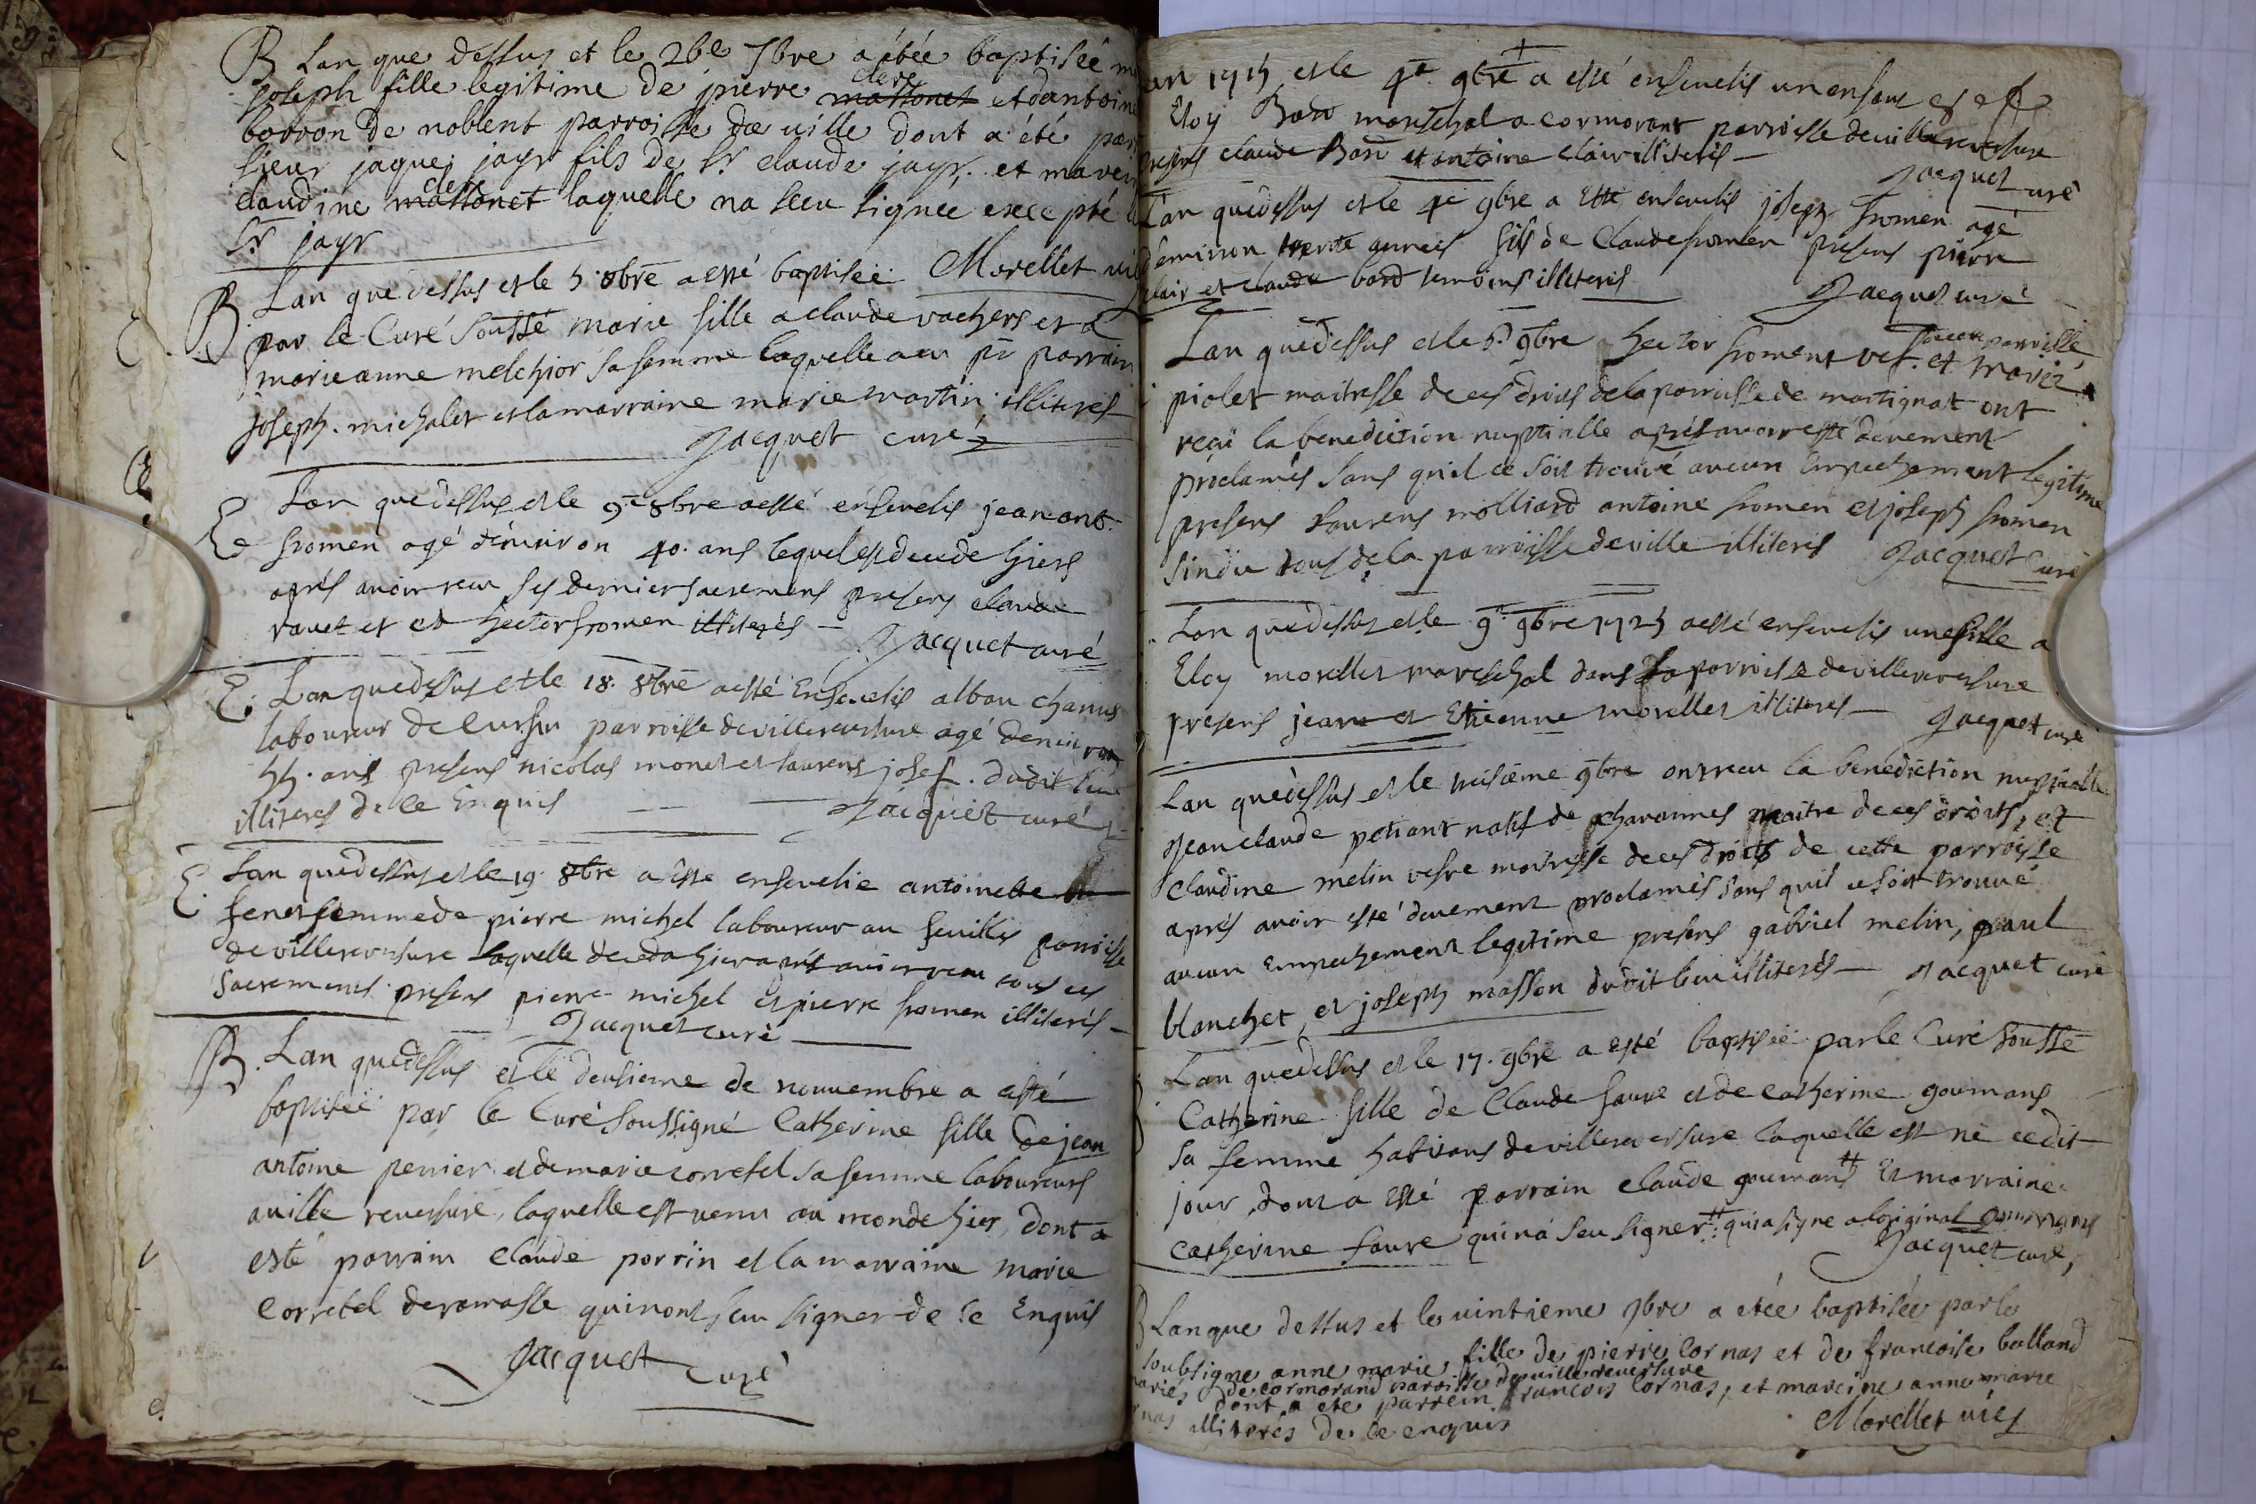 B Lan que dessus et le 26e 7bre a étée baptisée
joseph fille legitime de pierre clerc massonet et dantoine
borron de noblent parroisse de ville dont a été
sieur jaques jayr fils de Sr claude jayr et
claudine clerc massonet laquelle na sceu signee excepté
Sr jayr
Morellet
B Lan que dessus et le 5. 8bre a esté baptiséé
par le Curé soussé marie fille a claude vachers et a
marie anne melchior sa femme laquelle a eu pr parrain
joseph. michalet et la marraine marie martin illiteres
Jacquet curé
E Lan que dessus et le 9e 8bre a esté ensevelis jean ant.
fromen agé denviron 40. ans lequel est decede hiers
aprés avoir receu ses dernier sacremens presens claude
ravet et et hector fromen illiterés —
Jacquet curé
E. Lan que dessus et le 18. 8bre a esté Ensevelis alban chanus
laboureur de parroisse de villereversure agé denviron
55. ans presens nicolas monet et laurens josef. dudit lieu
illiteres de ce Enquis — Jacquet curé
E. Lan que dessus et le 19. 8bre a este ensevelie antoinette
femme de pierre michel laboureur au parroisse
de villereversure laquelle deceda hier aprés avoir receu tous ces
sacremens presens pierre michel et pierre fromen illiterés —
Jacquet curé
B. Lan que dessus et le deusieme de nouvembre a esté
baptiséé par le Curé soussigné Catherine fille de jean
antoine perrier et de marie corretel sa femme laboureurs
a ville reversure, laquelle est venu au monde hier, dont a
esté parrain claude perrin et la marraine marie
corretel de ramasse qui nont sceu signer de ce Enquis
Jacquet curé
an 1725 et le 4e 9bre a esté ensevelis un enfant
Eloy Bard mareschal a cormorant parroisse de villereversure
presens claude Bard et antoine clair illiterés —
Jacquet curé
Lan que dessus et le 4e 9bre a este ensevelis joseph fromen agé
denviron trente années fils de Claude fromen presens pierre
clair et claude bard temoins illiterés
Jacquet curé
Lan que dessus et le 6. 9bre hector froment vef. et
piolet maitresse de ces droits de la parroisse de martignat ont
reçu la benediction nuptialle aprés avoir esté deuement
proclamés sans quil ce soit trouvé aucun Empechement legitime
presens laurens molliard antoine fromen et joseph fromen
sindic tous de la parroisse de ville illiterés Jacquet Curé
Lan que dessus et le 9e 9bre 1725 a esté ensevelis une fille a
Eloy morellet mareschal dans la parroisse de villereversure
presens jean et Etienne morellet illiteres — Jacquet curé
Lan que dessus et le treisieme 9bre ont receu la benediction nuptialle
Jean claude potiant natif de chavannes maitre de ces droits, et
Claudine melin vefve maitresse de ces droits de cette parroisse
aprés avoir esté deuement proclamés sans quil ce soit trouvé
aucun empechement legitime presens gabriel melin, paul
blanchet, et joseph masson dudit lieu illiterés — Jacquet curé
Lan que dessus et le 17. 9bre a esté baptiséé par le Curé soussé
Catherine fille de Claude faure et de catherine goumans
sa femme habitans de villereversure laquelle est né cedit
jour, dont a esté parrain claude goumans # Et marraine
catherine faure qui na sceu signer # qui a signe a loriginal goumans
Jacquet curé,
B Lan que dessus et le vintieme 9bre a étée baptisée par le
soubsigne anne marie fille de pierre Cornas et de francoise balland
mariés de cormorand paroisse de villereversure
dont a été parrein francois Cornas, et mareine anne marie
illiterés de ce enquis
Morellet vic